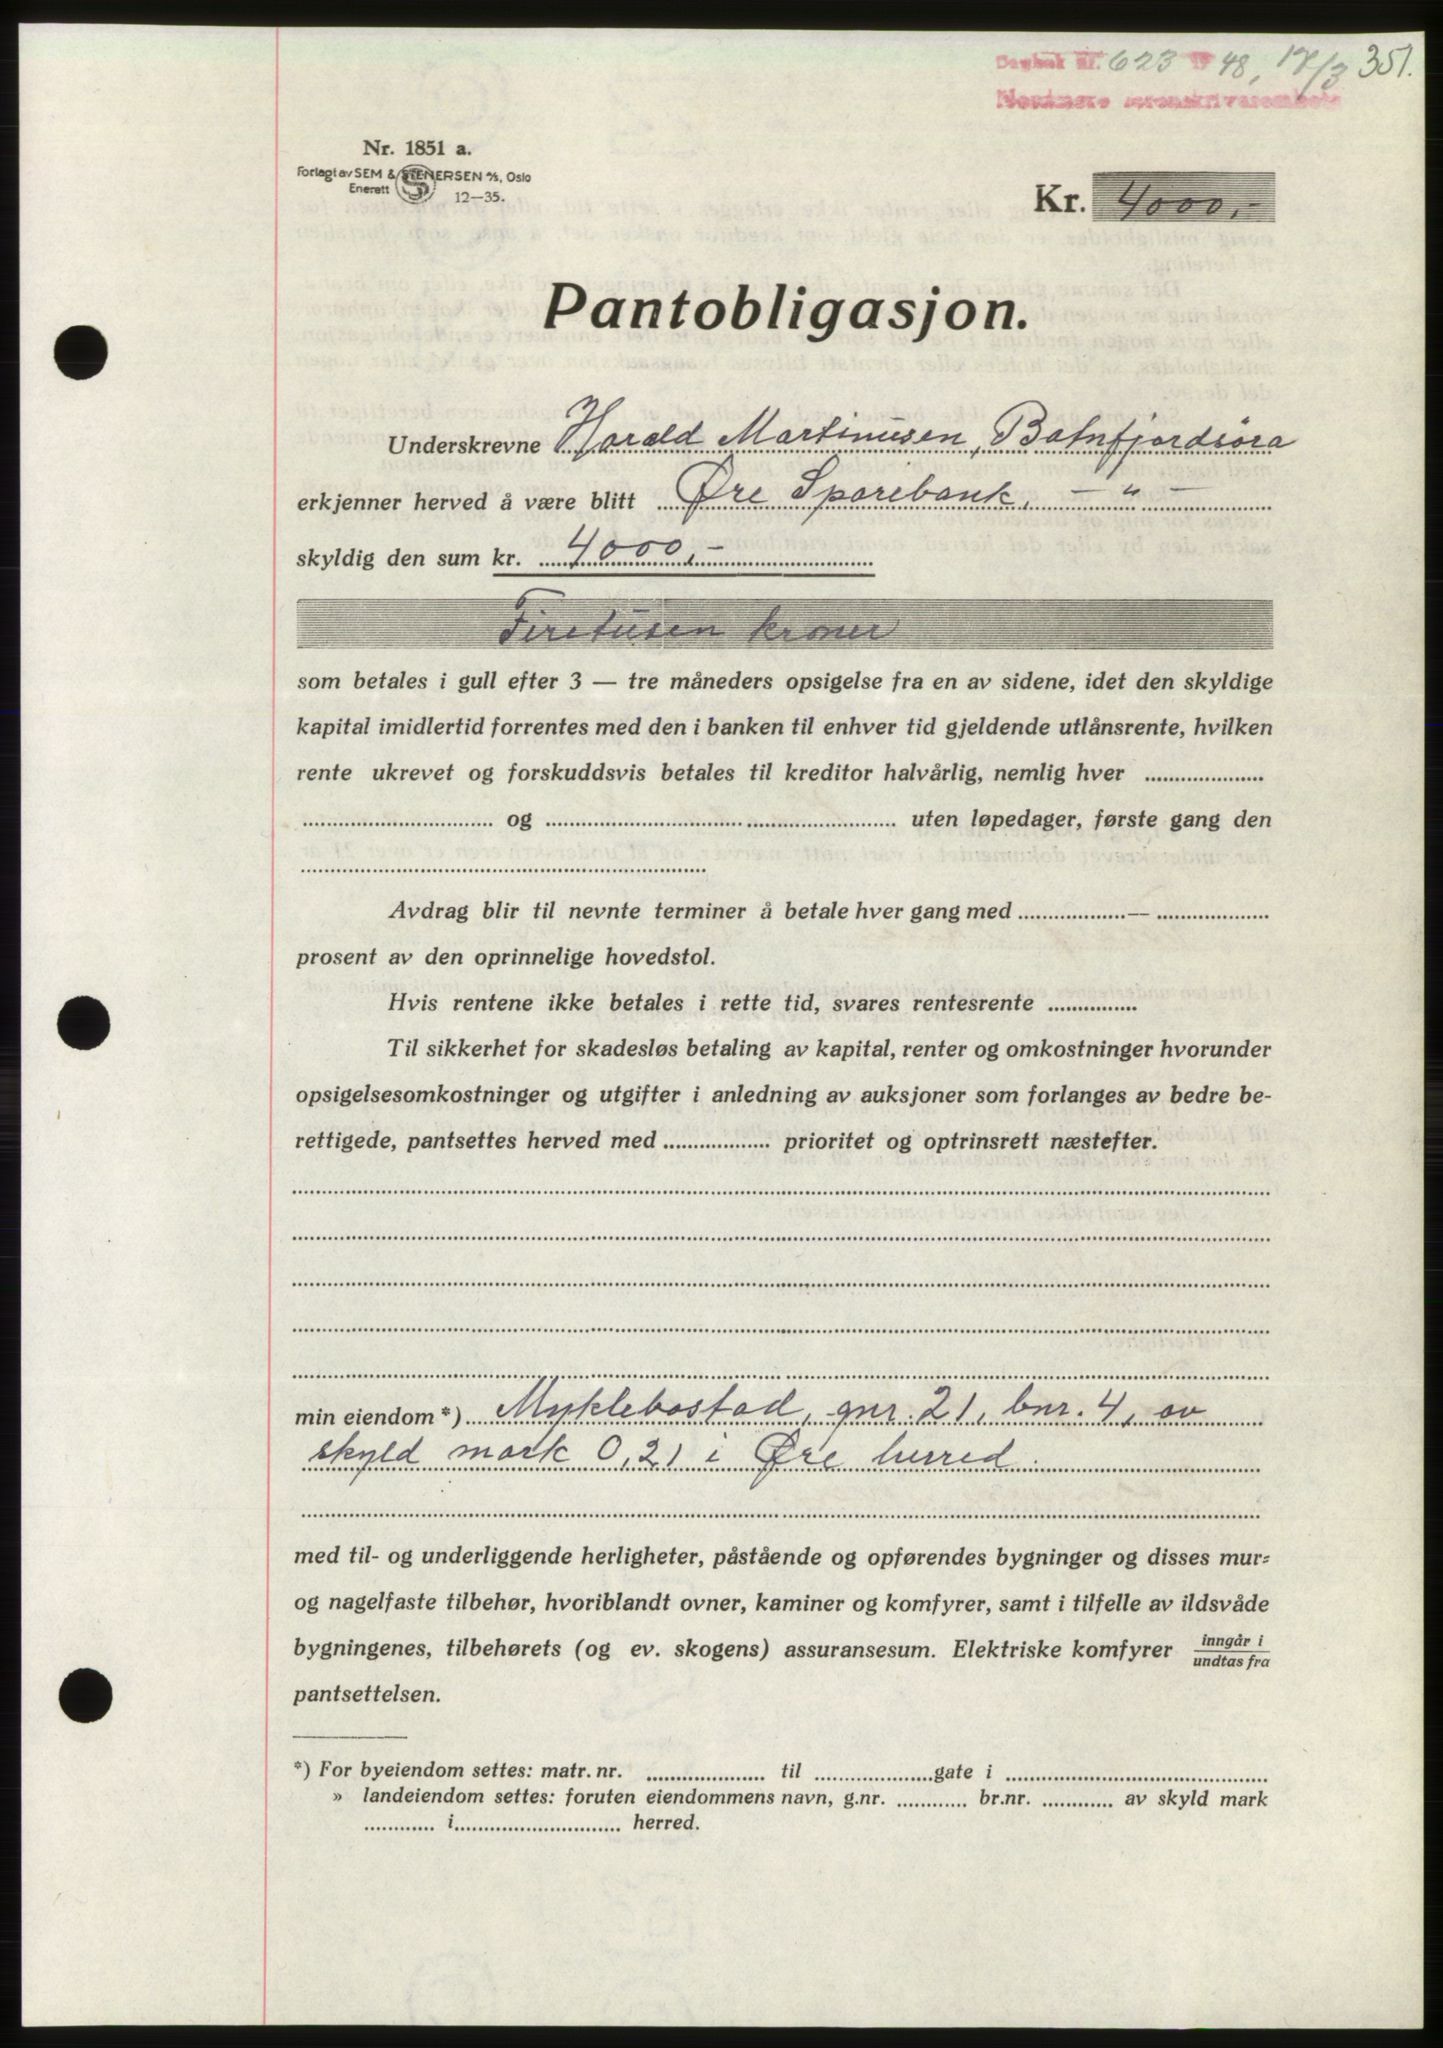 Dagbok nr. 623 19 48, 17/3 351.
Nordmøre sorenskriverembete
Nr. 1851 a.
Forlagt av SEM & STENERSEN A/S, Oslo
Enerett
12—35.
Kr. 4000,-
Pantobligasjon.
Underskrevne Harald Martinusen, Batnfjordsøra
erkjenner herved å være blitt Øre Sparebank, — " —
skyldig den sum kr. 4000,-
Firetusen kroner
som betales i gull efter 3 — tre måneders opsigelse fra en av sidene, idet den skyldige
kapital imidlertid forrentes med den i banken til enhver tid gjeldende utlånsrente, hvilken
rente ukrevet og forskuddsvis betales til kreditor halvårlig, nemlig hver ....................
................................ og ................................ uten løpedager, første gang den
................................
Avdrag blir til nevnte terminer å betale hver gang med ..................—..................
prosent av den oprinnelige hovedstol.
Hvis rentene ikke betales i rette tid, svares rentesrente ...............
Til sikkerhet for skadesløs betaling av kapital, renter og omkostninger hvorunder
opsigelsesomkostninger og utgifter i anledning av auksjoner som forlanges av bedre be-
rettigede, pantsettes herved med .................. prioritet og optrinsrett næstefter.
min eiendom *) Myklebostad, gnr. 21, bnr. 4, av
skyld mark 0,21 i Øre herred.
med til- og underliggende herligheter, påstående og opførendes bygninger og disses mur-
og nagelfaste tilbehør, hvoriblandt ovner, kaminer og komfyrer, samt i tilfelle av ildsvåde
bygningenes, tilbehørets (og ev. skogens) assuransesum. Elektriske komfyrer inngår i / undtas fra
pantsettelsen.
*) For byeiendom settes: matr. nr. .................... til ....................gate i ................................
» landeiendom settes: foruten eiendommens navn, g.nr. ............ br.nr. ............ av skyld mark
............ i............................ herred.